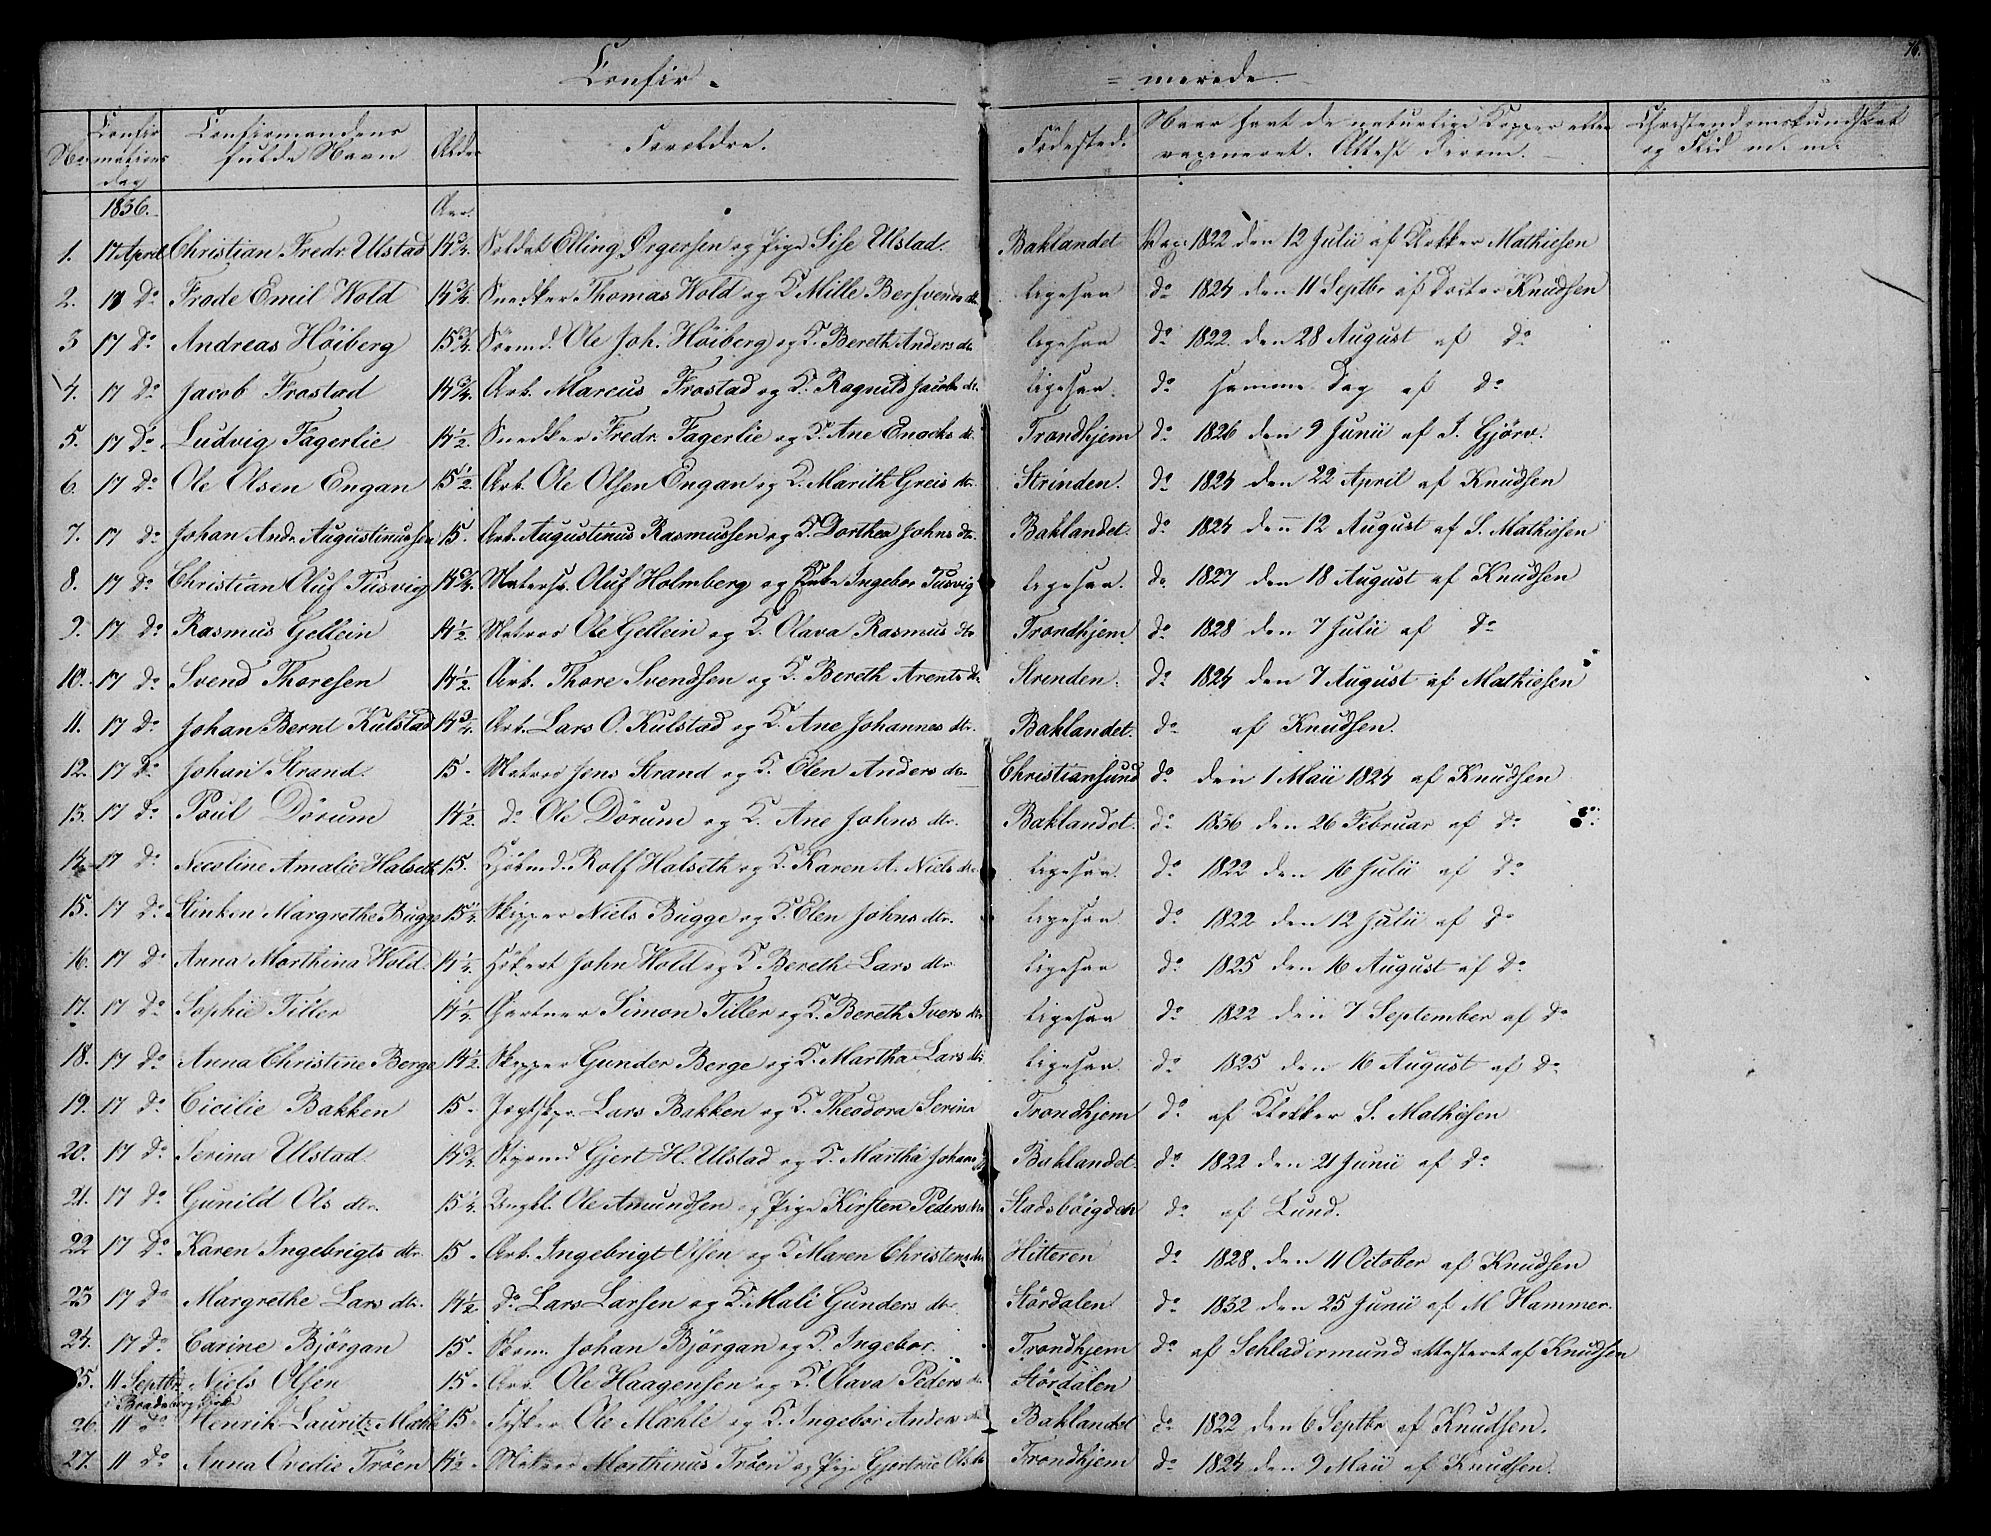 Confir-
= merede.
76.
No
Confirmations dag
Confirmandens fulde Navn
Alder
Forældre.
Fødested.
Naar havt de naturlige Kopper eller vaxineret. Attest derom.
Christendomskundskab og Flid m: m:
1836.
Aar.
1. 17 April Christian Fredr. Ulstad 14 3/4. Soldat Elling Ørgersen og Pige Sise Ulstad. Baklandet Vax: 1822 den 12 Julii af Klokker Mathiesen
2. 17 Do Frode Emil Wold 14 3/4. Snedker Thomas Wold og K. Mille Bersvends dtr. ligesaa do 1824 den 11 Septbr af Docter Knudsen
3 17 Do Andreas Høiberg 15 3/4. Ole Joh. Høiberg og K. Bereth Anders dtr. ligesaa do 1822 den 28 August af do
4. 17 Do Jacob Frostad 14 3/4. Arb. Marcus Frostad og K. Ragnild Jacobs dtr. ligesaa. do samme Dag af do
5. 17 Do Ludvig Fagerlie 14 1/2. Snedker Fredr. Fagerlie og K. Ane Enochs dr. Trondhjem do 1826 den 9 Junii af J. Gjørv.
6. 17 Do Ole Olsen Engan 15 1/2. Arb. Ole Olsen Engan og K. Marith Greis dtr. Strinden. do 1824 den 22 April af Knudsen
7. 17 do Johan Andr. Augustinussen 15. Arb. Augustinus Rasmussen og K. Dorthea Johns dtr. Baklandet. do 1824 den 12 August af S. Mathiesen
8. 17 do Christian Oluf Tusvig 14 3/4. Oluf Holmberg og Enke Ingebor Tusvig ligesaa. do 1827 den 18 August af Knudsen
9. 17 do Rasmus Gellein 14 1/2. Matros Ole Gellein og K. Olava Rasmus dtr Trondhjem. do 1828 den 7 Julii af do
10. 17 do Svend Thoresen 14 1/2. Arb. Thore Svendsen og K. Bereth Arents dr. Strinden. do 1824 den 7 August af Mathiesen
11. 17 do Johan Bernt Kulstad 14 3/4. Arb. Lars O. Kulstad og K. Ane Johannes dtr. Baklandet. do af Knudsen.
12. 17 Do Johan Strand. 15 - Matros Jens Strand og K. Elen Anders dtr. Christiansund do den 1 Maii 1824 af Knudsen
13. 17 do Poul Dørum 14 1/2. do Ole Dørum og K. Ane Johns dtr. Baklandet. do 1836 den 26 Februar af do
14 17 do Nicoline Amalie Halseth 15. Rolf Halseth og K. Karen A. Niels dtr. ligesaa. do 1822 den 16 Julii af do
15. 17 do Stinken Margrethe Bugge 15 1/4. Skipper Niels Bugge og K. Elen Johns dtr. ligesaa do 1822 den 12 Julii af do
16. 17 do Anna Morthina Wold. 14 1/4. John Wold og K. Bereth Lars dtr. ligesaa do 1825 den 16 August af do
17. 17 do Sophie Tiller 14 1/4. Gartner Simon Tiller og K. Bereth Ivers dtr ligesaa do 1822 den 7 September af do
18. 17 do Anna Christine Berge 14 1/2. Skipper Gunder Berge og K. Martha Lars dtr ligesaa. do 1825 den 16 August af do
19. 17 do Cicilie Bakken 15 - Lars Bakken og K. Theodora Serina Trondhjem do af Klokker S. Mathiesen
20. 17 do Serina Ulstad 14 3/4. Gjert H. Ulstad og K. Martha Johans Baklandet. do 1822 den 21 Junii af do
21. 17 do Gunild Ols dtr. 15 1/4. Ungkl. Ole Amundsen og Pige Kirsten Peders dtr Stadsbøigden do af Lund.
22 17 do Karen Ingebrigts dtr. 15 - Arb. Ingebrigt Olsen og K. Maren Christens dtr Hitteren do 1828. den 11 October af Knudsen
23 17 do Margrethe Lars dtr. 14 1/2. do Lars Larsen og K. Mali Gunders dtr. Størdalen do 1832 den 25 Junii af M Hammer.
24. 17 do Carine Bjørgan 15 - Johan Bjørgan og K. Ingebor. Trondhjem do af Schladermund attesteret af Knudsen
25. 11 Septbr. Niels Olsen 15 - Arb. Ole Haagensen og K. Olava Peders dr. Størdalen
26. 11 do Henrik Lauritz Mahle 15 - Fisker Ole Mahle og K. Ingebor Anders dtr Baklandet do 1822 den 6 Septbr af Knudsen.
27. 11 do Anna Ovedie Trøen 14 1/2 - Matros Morthinus Trøen og Pige Gjertrue Ols dtr Trondhjem do 1824 den 9 Maii af Knudsen.